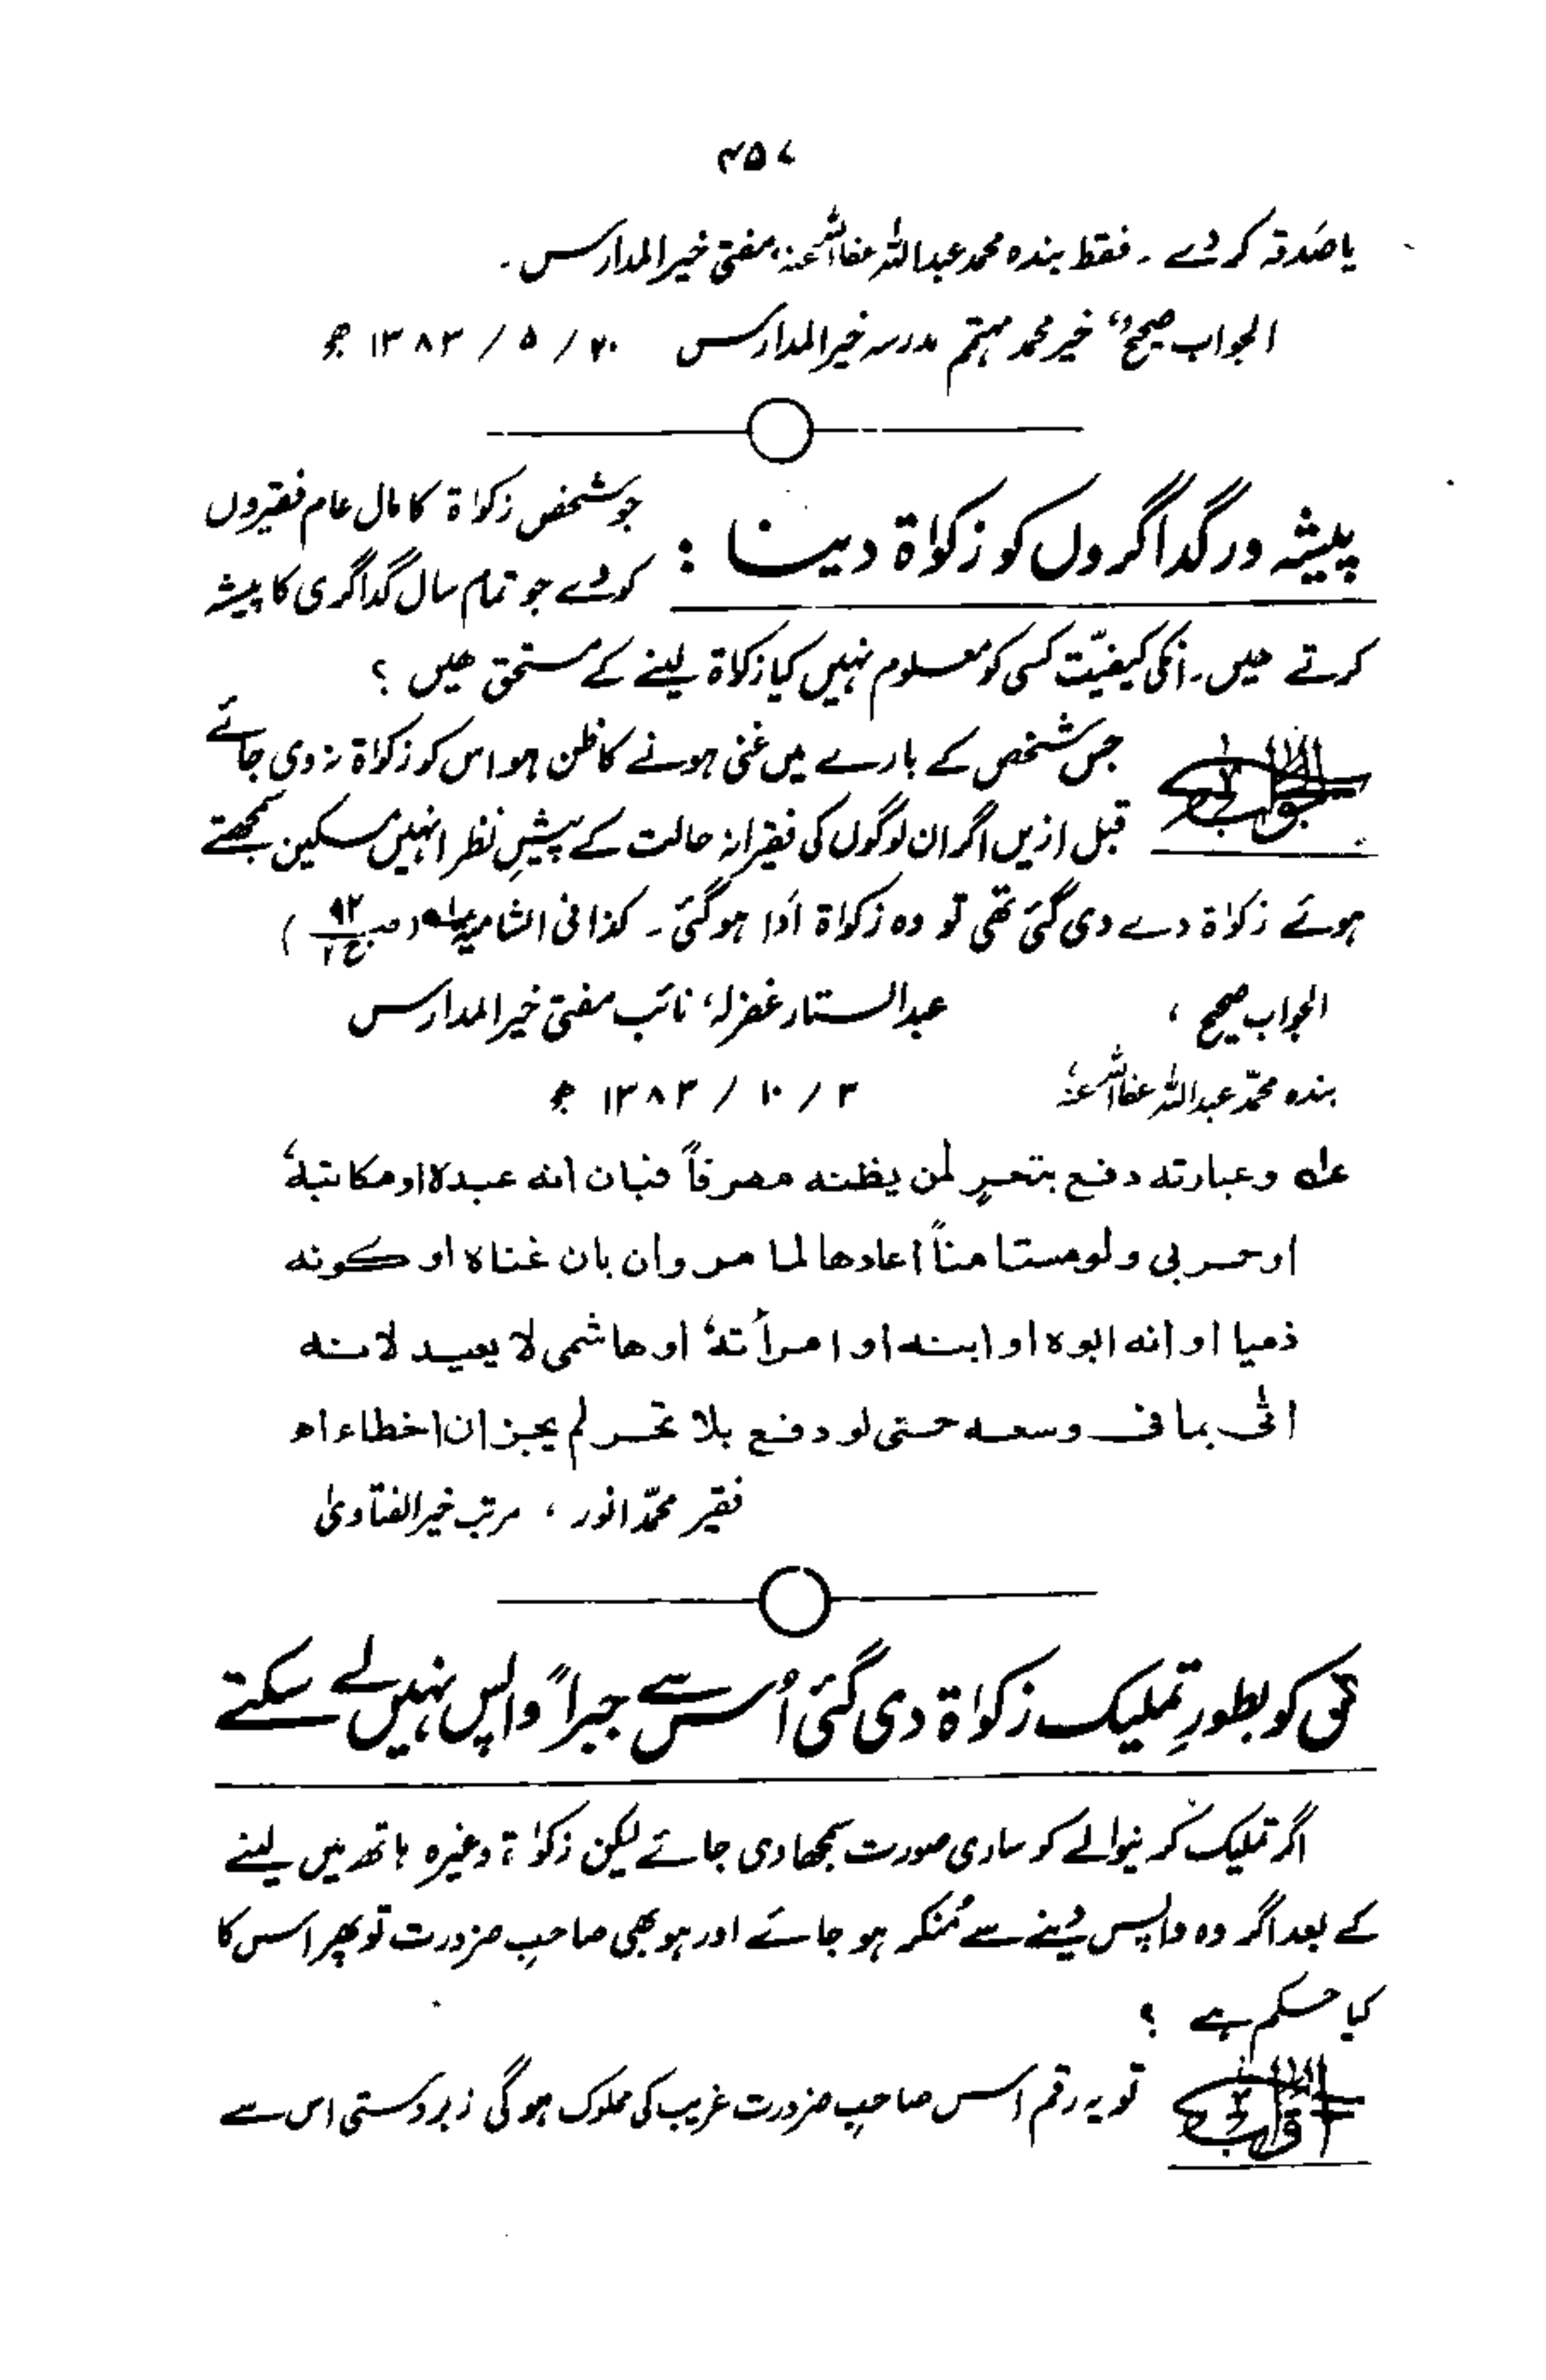 ۴۵۷
یا صَدقہ کر دے۔ فقط بندہ محمد عبداللہ عفا اللہ عنہ، مفتی خیر المدارس۔
الجواب صحیح، خیر محمد مہتمم مدرسہ خیر المدارس ۲۰ / ۵ / ۱۳۸۳ ھ
پیشہ ور گداگروں کو زکوٰۃ دینا :
جو شخص زکوٰۃ کا مال عام فقیروں
کو دے جو تمام سال گداگری کا پیشہ
کرتے ہیں۔ انکی کیفیّت کسی کو معلوم نہیں کیا زکاۃ لینے کے مستحق ھیں ؟
الجواب
جس شخص کے بارے میں غنی ہونے کا ظن ہو اس کو زکوٰۃ نہ دی جائے
قبل ازیں اگر ان لوگوں کی فقیرانہ حالت کے پیشِ نظر انہیں مسکین سمجھتے
ہوئے زکوٰۃ دے دی گئی تھی تو وہ زکوٰۃ اَدا ہو گئی۔ کذا فی الشامیہ عله (ص ۹۲ ج ۲)
الجواب صحیح ، عبدالستار غفرلہٗ نائب مفتی خیر المدارس
بندہ محمّد عبداللہ عفا اللہ عنہٗ ۳ / ۱۰ / ۱۳۸۳ ھ
عله وعبارته دفع بتحرٍ لمن یظنه مصرفاً فبان انه عبدہ او مکاتبهٗ
او حربی ولو مستامناً اعادھا لما مر وان بان غناہ او کونه
ذمیا او انه ابوہ او ابنه او امرأتهٗ او ھاشمی لا یعید لانه
اتی بما فی وسعه حتی لو دفع بلا تحر لم یجز ان اخطاء اھ
فقیر محمّد انور ، مرتب خیر الفتاویٰ
جس کو بطورِ تملیک زکوٰۃ دی گئی اُس سے جبراً واپس نہیں لے سکتے
اگر تملیک کرنیوالے کو ساری صورت سمجھا دی جائے لیکن زکوٰۃ وغیرہ ہاتھ میں لینے
کے بعد اگر وہ واپس دینے سے مُنکر ہو جائے اور ہو بھی صاحبِ ضرورت تو پھر اس کا
کیا حکم ہے ؟
الجواب
تو یہ رقم اس صاحبِ ضرورت غریب کی مملوک ہو گی زبردستی اس سے